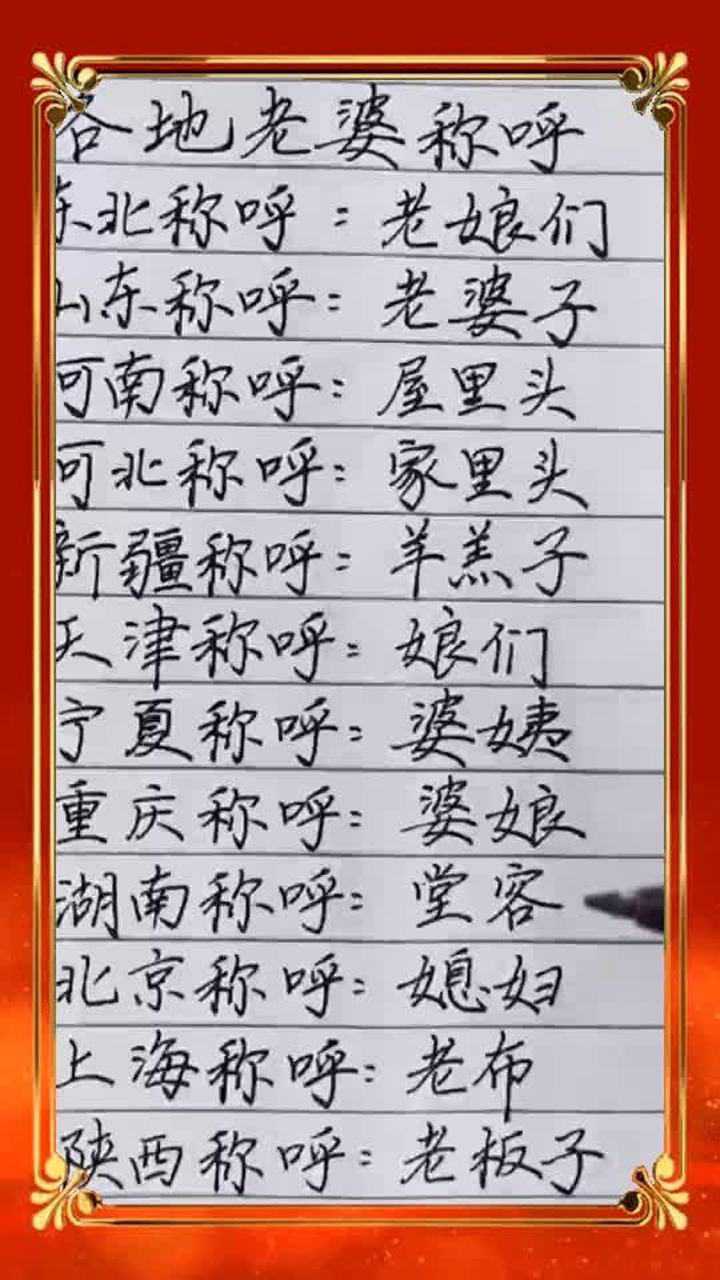 各地老婆称呼
东北称呼：老娘们
山东称呼：老婆子
河南称呼：屋里头
河北称呼：家里头
新疆称呼：羊羔子
天津称呼：娘们
宁夏称呼：婆姨
重庆称呼：婆娘
湖南称呼：堂客
北京称呼：媳妇
上海称呼：老布
陕西称呼：老板子